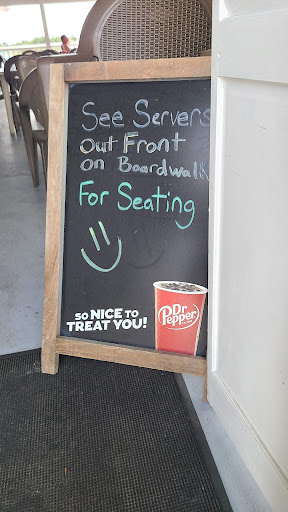 See Servers
Out Front
on Boardwalk
For Seating
SO NICE TO
TREAT YOU!
Dr
Pepper